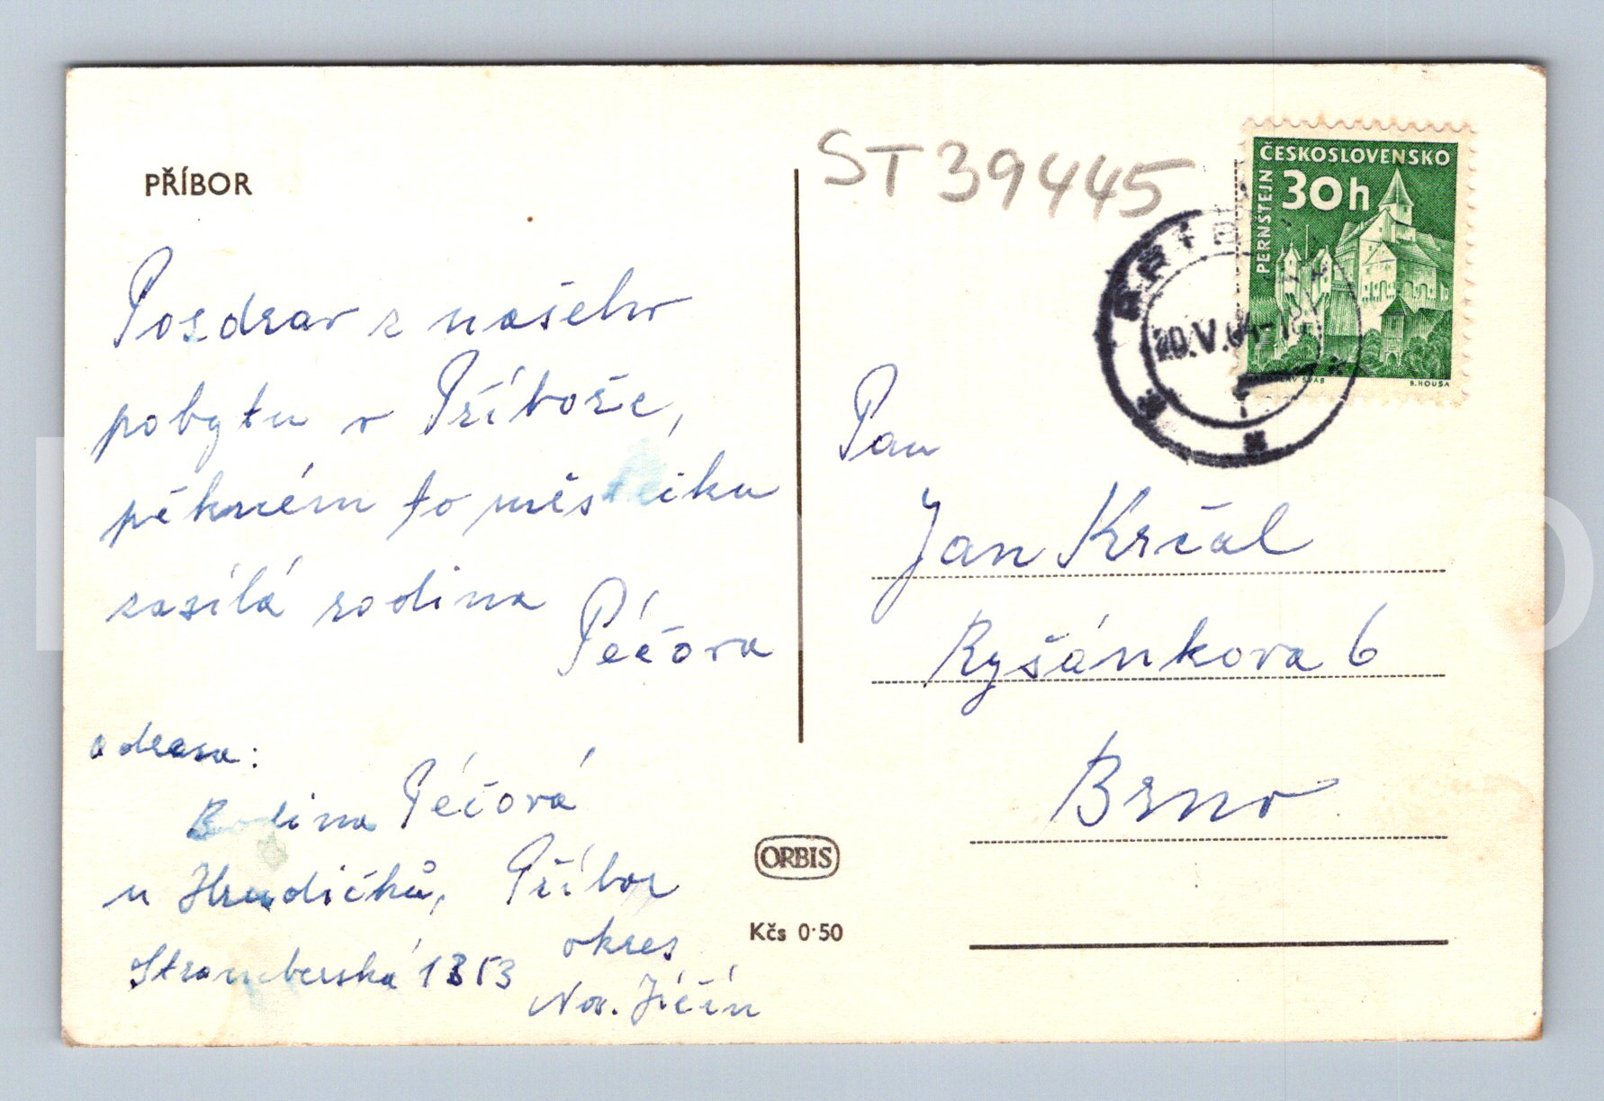 PŘÍBOR
Pozdrav z našeho
pobytu v Příboře,
pěkném to městeiku
zasílá rodina
Péčova
adresa:
Rodina Péčová
u Hrudičků, Příbor
Štramberská 1353 okres
Nov. Jičín
ST39445
ČESKOSLOVENSKO
30h
PERNŠTEJN
B. HOUSA
20.V.64-18
Pan
Jan Krčál
Ryšánkova 6
Brno
ORBIS
Kčs 0·50